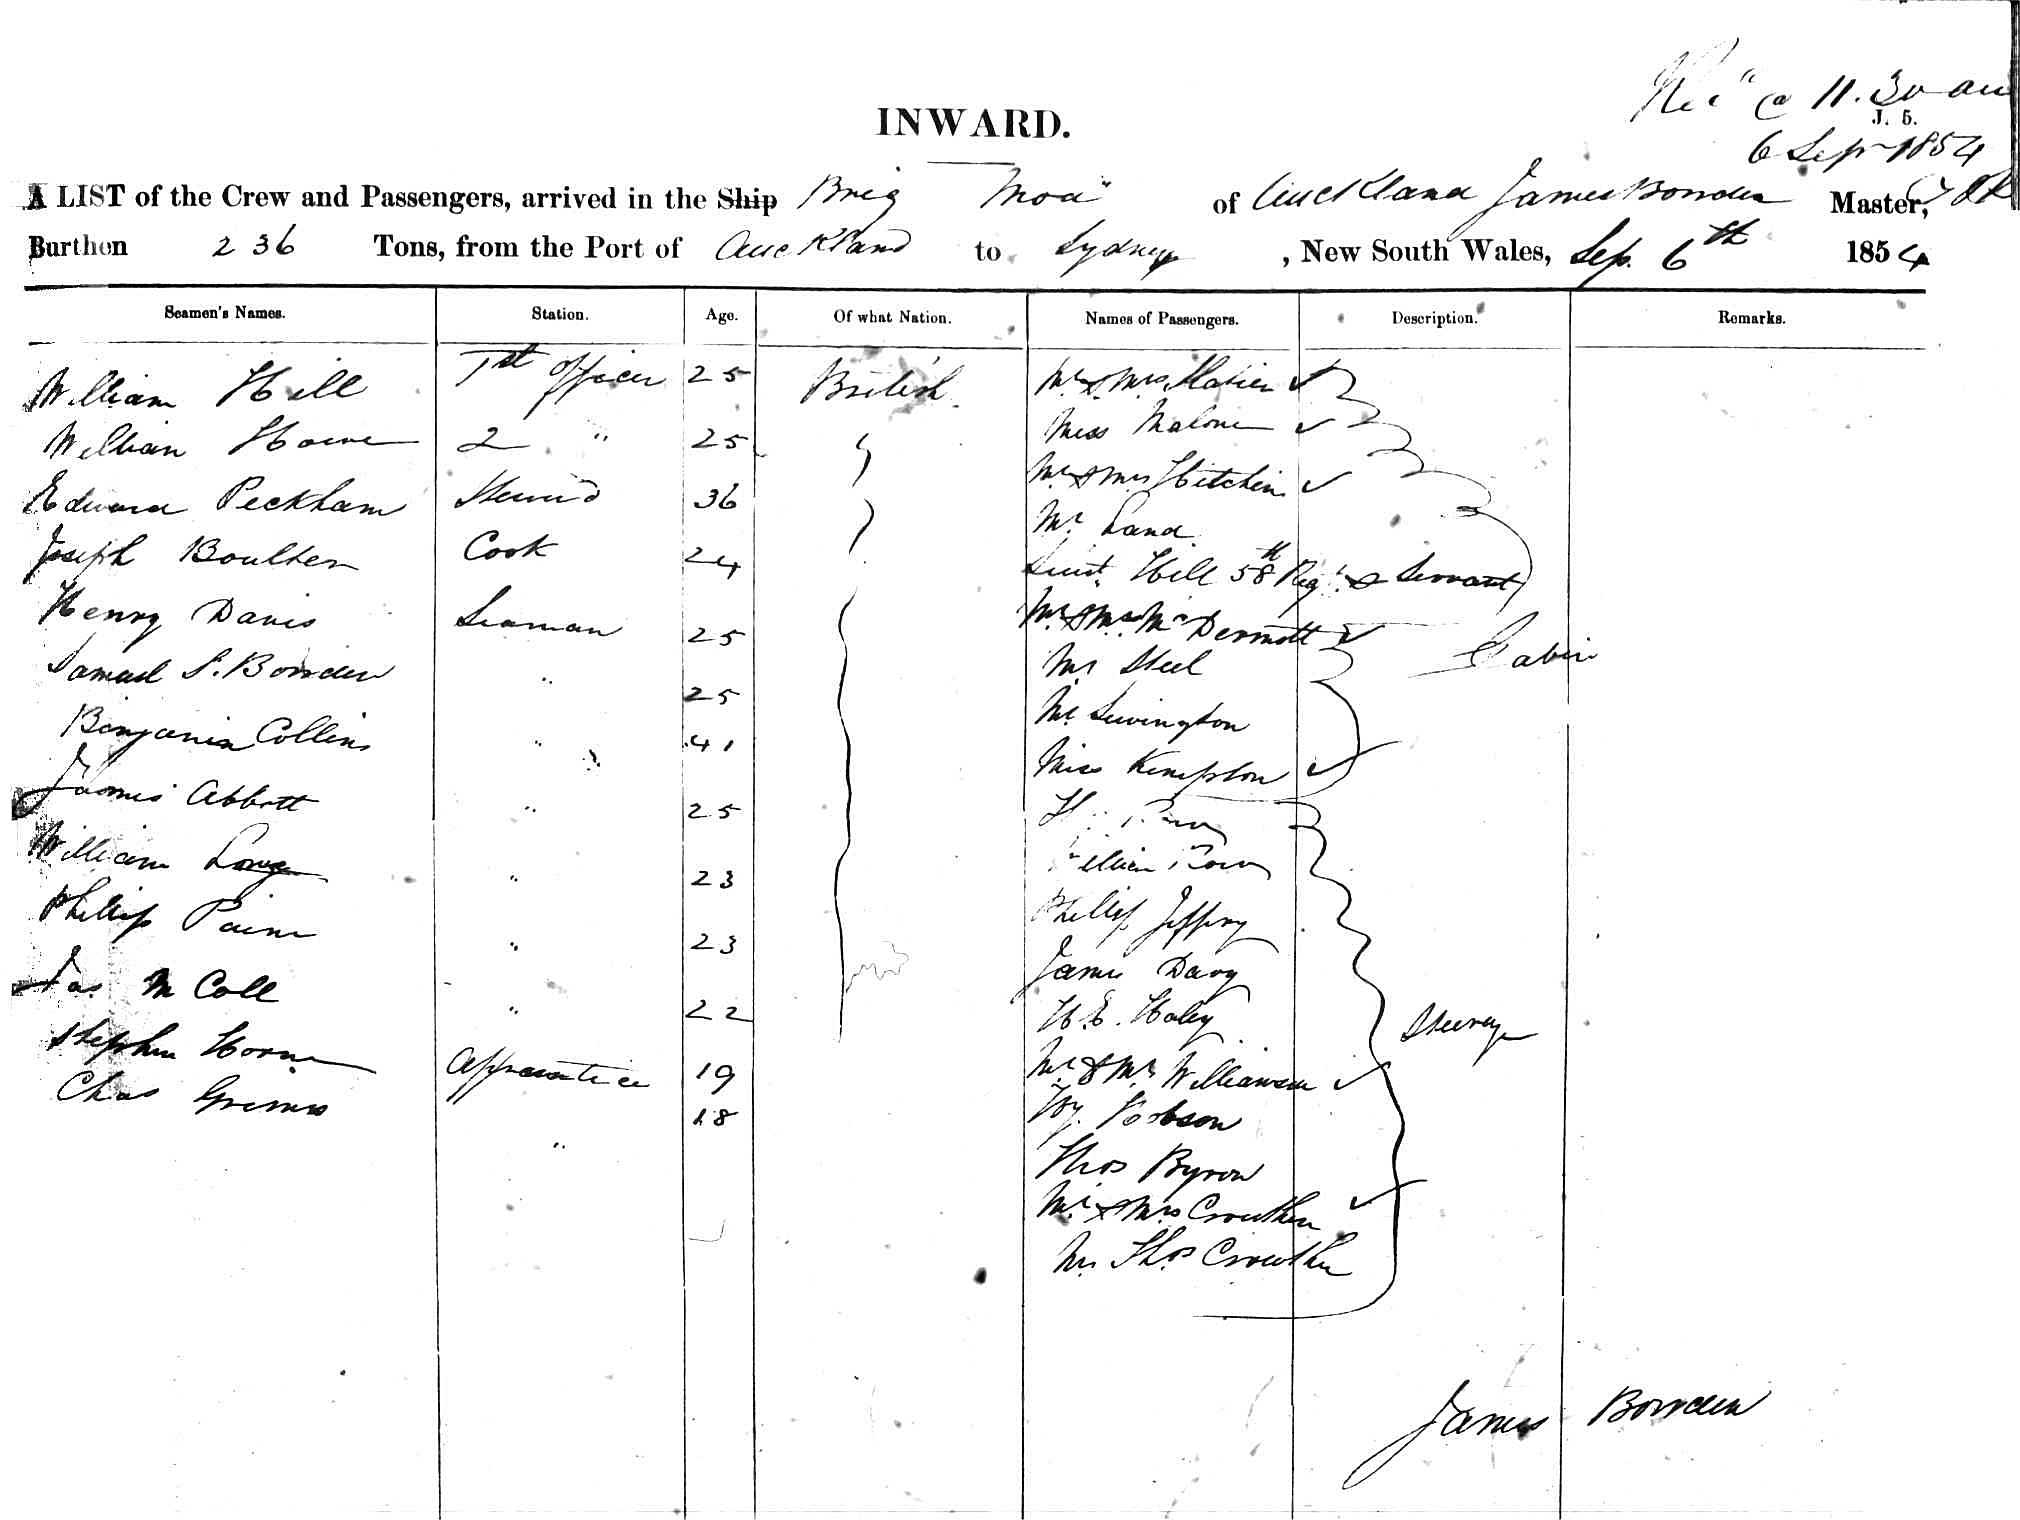 INWARD.
@ 11.30 am
J. 5.
6 Sep 1854
A LIST of the Crew and Passengers, arrived in the Ship Brig "Moa" of Auckland James Bowden Master,
Burthen 236 Tons, from the Port of Auckland to Sydney, New South Wales, Sep. 6th 1854
Seamen's Names. Station. Age. Of what Nation. Names of Passengers. Description. Remarks.
William Hill 1st Officer 25 British Mr & Mrs
William 2 " 25 Miss Malone
Edward Peckham Steward 36 Mr & Mrs Hitchins
Joseph Boulter Cook 24 Mr Land
Henry Davis Seaman 25 Lieut. Hill 58th Regt. & Servant
Samuel S. Bowden " 25 Mr & Mrs McDermott Cabin
Benjamin Collins " 41 Mr Steel
James Abbott " 25 Mr Sevington
William Long " 23 Miss Kempton
Phillip Paine " 23
Jas. McColl " 22
Stephen Horne Apprentice 19
Chas Grimes " 18
Phillip Jeffrey
James Davy
H.E. Haley Steerage
Mr & Mrs Williamson
Hy. Hobson
Thos Byron
Mr & Mrs Crowther
Mr. Thos Crowther
James Bowden